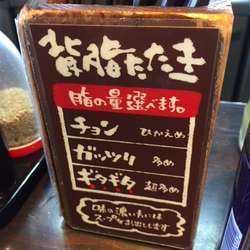 背脂たたき
脂の量選べます。
チョン ひかえめ
ガッツリ 多め
ギタギタ 超多め
味の濃い方には
スープをお出しします